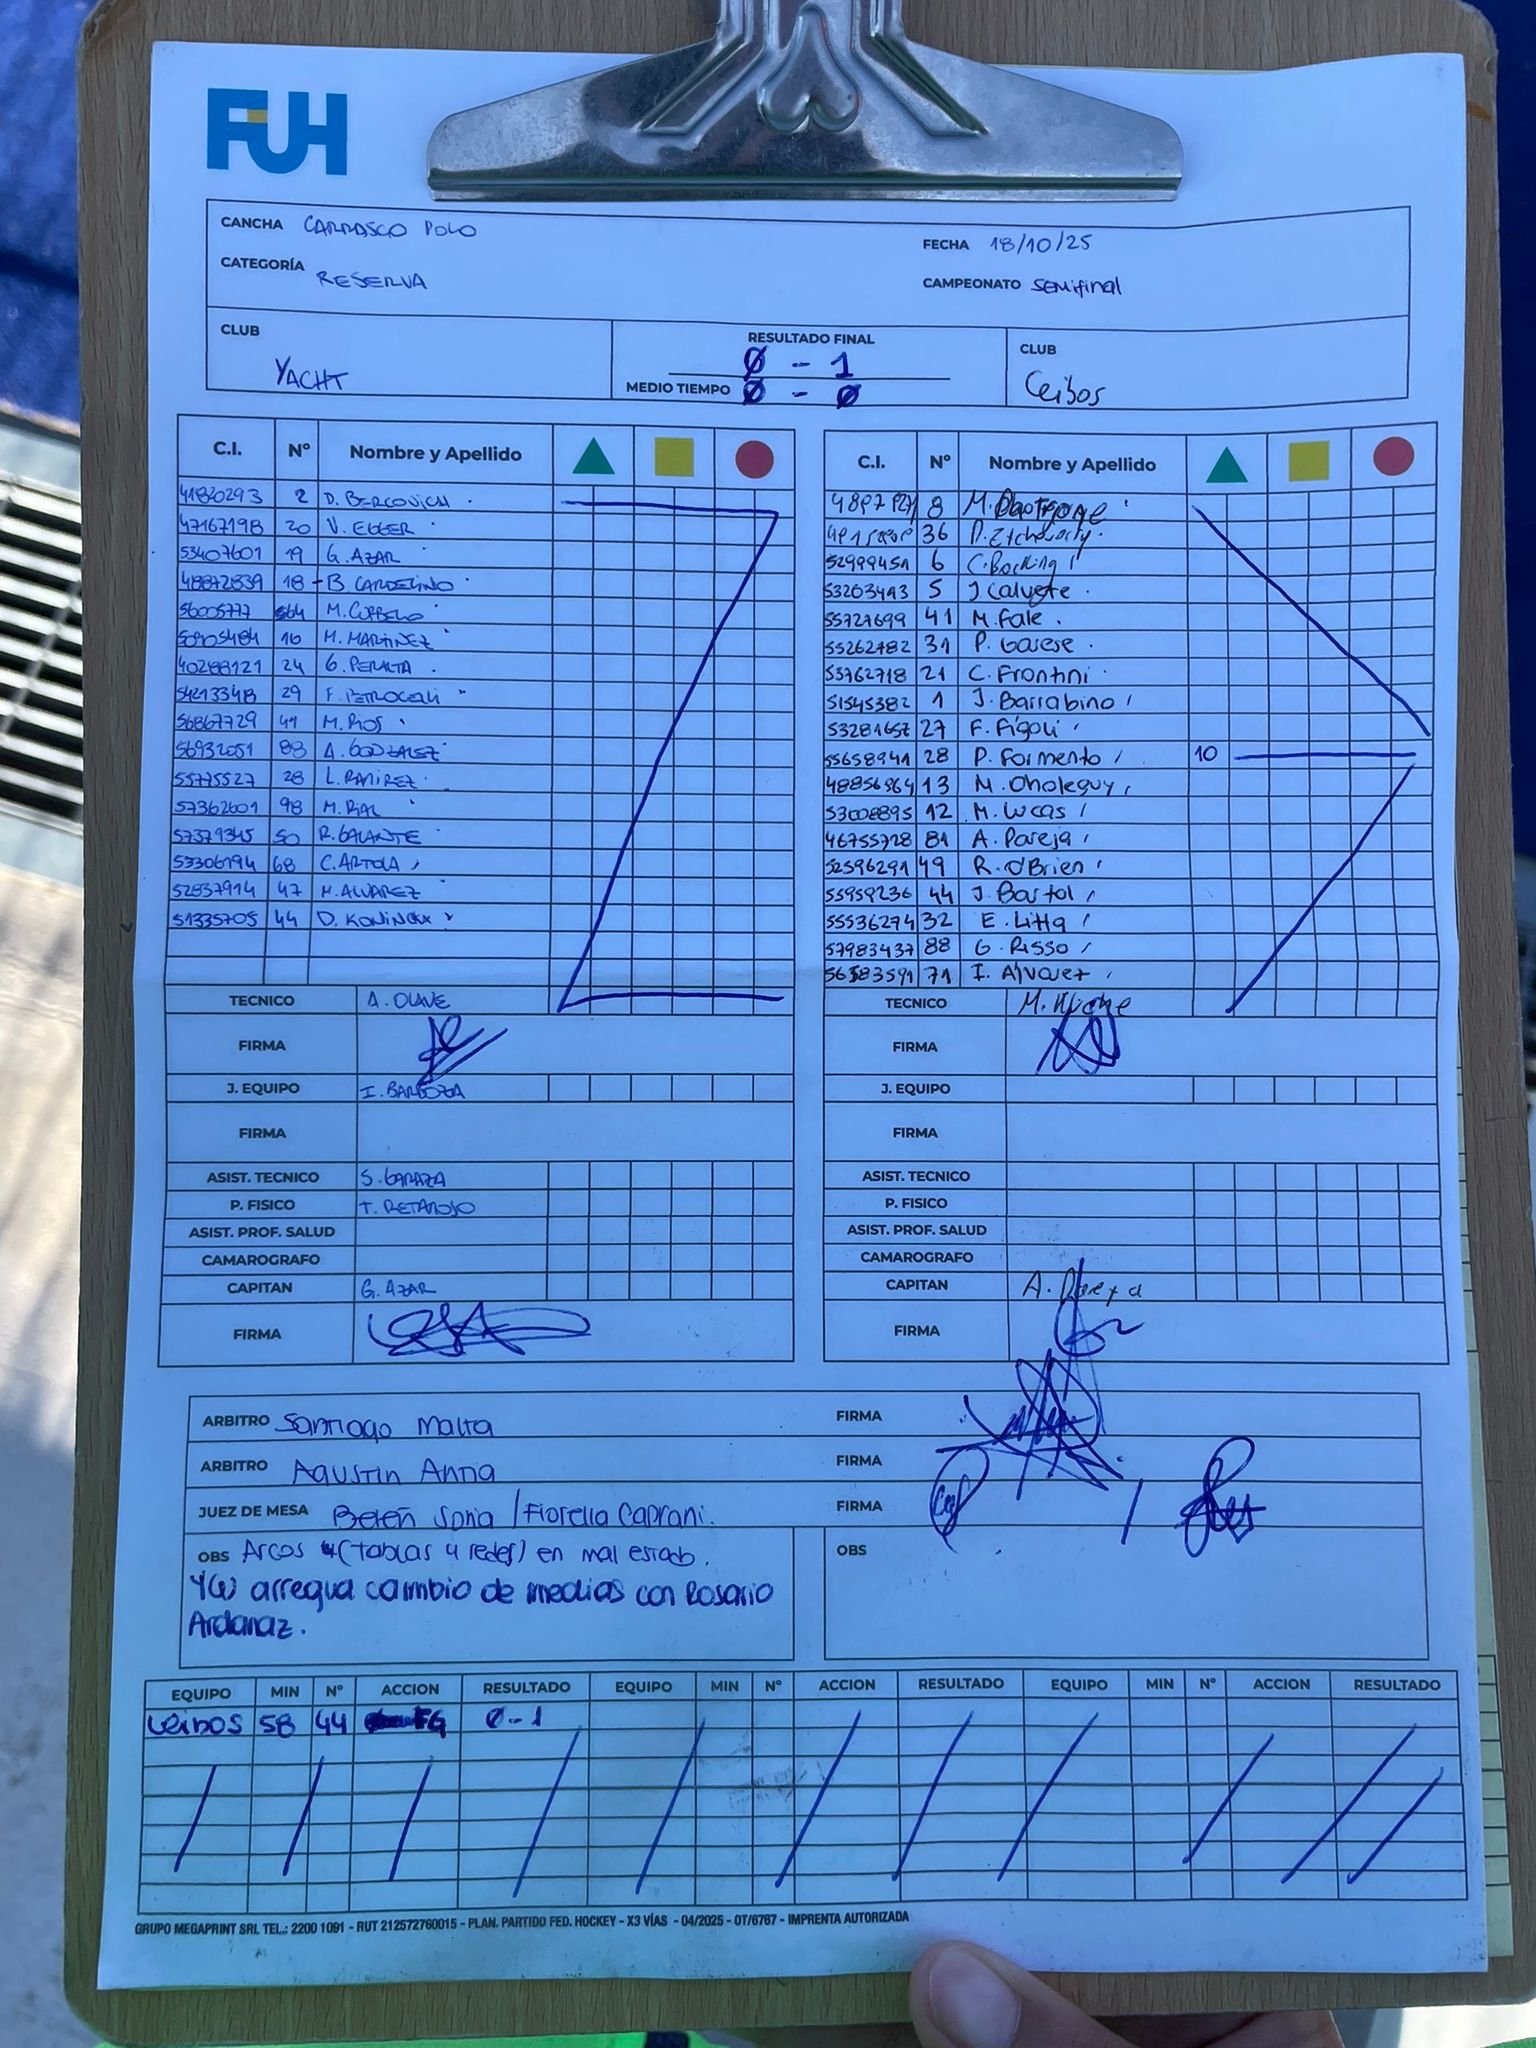 FUH
CANCHA CARRASCO POLO
FECHA 18/10/25
CATEGORÍA RESERVA
CAMPEONATO semifinal
CLUB YACHT
RESULTADO FINAL 0 - 1
MEDIO TIEMPO 0 - 0
CLUB Ceibos
C.I. Nº Nombre y Apellido
41820293 2 D. BERCOVICH
47167198 20 V. EGGER
53407601 19 G. AZAR
48872839 18 - B. CARDELINO
56005777 64 M. CURBELO
16 M. MARTINEZ
40288121 24 G. PERALTA
54213348 29 F. PETROCELLI
56867729 41 M. RIOS
56932051 88 A. GONZALEZ
55775527 28 L. RAMIREZ
57362601 98 M. RIAL
57379345 50 R. GALANTE
53306194 68 C. ARTOLA
52837914 47 M. ALVAREZ
51335705 44 D. KONINCKX
TECNICO A. OLAVE
FIRMA
J. EQUIPO I. BARBOZA
FIRMA
ASIST. TECNICO S. GARAZA
P. FISICO T. RETAMOSO
ASIST. PROF. SALUD
CAMAROGRAFO
CAPITAN G. AZAR
FIRMA
C.I. Nº Nombre y Apellido
8 M.
36 D. Etcheverry
52999451 6 C. Bocking
53203493 5 J. Calvete
55727699 41 M. Fale
55262782 31 P. Garese
55762718 21 C. Frontini
51545382 1 J. Barrabino
53281657 27 F. Figoli
55658941 28 P. Formento 10
48856964 13 M. Oholeguy
53008895 12 M. Lucas
46755728 81 A. Pareja
52596291 49 R. O'Brien
55959236 44 J. Bartol
55536274 32 E. Litta
57983437 88 G. Risso
56583591 71 I. Alvarez
TECNICO M.
FIRMA
J. EQUIPO
FIRMA
ASIST. TECNICO
P. FISICO
ASIST. PROF. SALUD
CAMAROGRAFO
CAPITAN A. Pareja
FIRMA
ARBITRO Santiago Malta FIRMA
ARBITRO Agustin Antia FIRMA
JUEZ DE MESA Belén Soria / Fiorella Caprani. FIRMA
OBS Arcos (tablas y redes) en mal estado.
YCU arregua cambio de medias con Rosario
Ardanaz.
OBS
EQUIPO MIN Nº ACCION RESULTADO EQUIPO MIN Nº ACCION RESULTADO EQUIPO MIN Nº ACCION RESULTADO
Ceibos 58 44 FG 0-1
GRUPO MEGAPRINT SRL TEL.: 2200 1091 - RUT 212572760015 - PLAN. PARTIDO FED. HOCKEY - X3 VÍAS - 04/2025 - OT/6767 - IMPRENTA AUTORIZADA